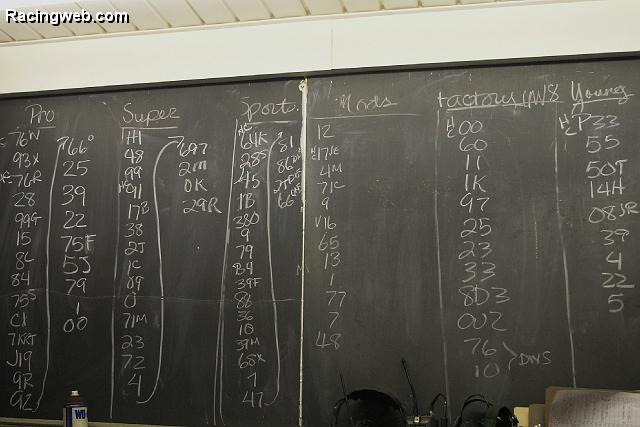 Racingweb.com
Pro
76W
93X
76R
28
99G
15
8C
84
75S
C1
7KRT
J19
9R
92
66
25
39
22
75F
5J
79
1
00
Super
H1
48
99
91
17B
38
2J
1C
09
0
71M
23
72
4
697
2m
0K
29R
Sport
64K
28S
45
1B
380
9
79
84
39F
88
36
10
39M
68X
7
47
81
86
66
Mods
12
17JE
4M
71C
9
V16
65
13
1
77
7
48
00
60
11
1K
97
25
23
33
8D3
0UZ
76
10
DNS
Young
P33
55
50T
14H
08JR
39
4
22
5
WD